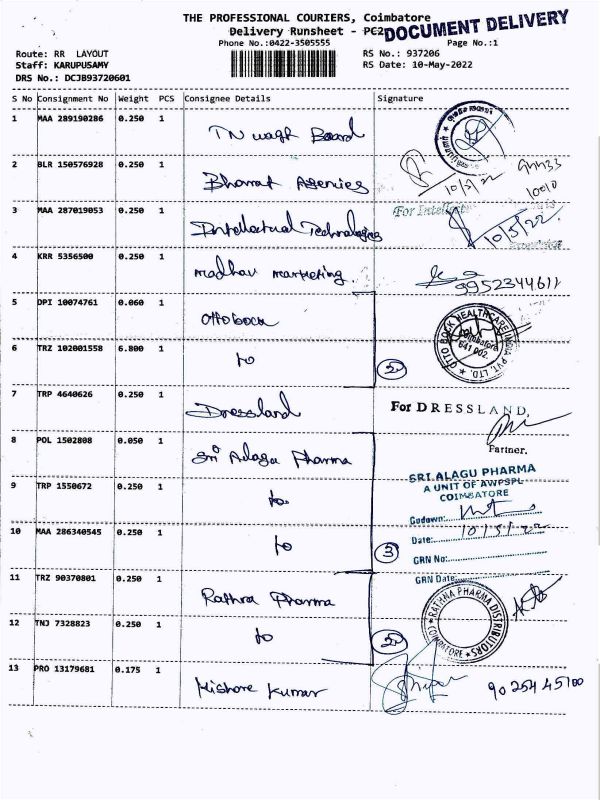 THE PROFESSIONAL COURIERS, Coimbatore
Delivery Runsheet - PC2
DOCUMENT DELIVERY
Phone No.:0422-3505555
Page No.:1
Route: RR LAYOUT
RS No.: 937206
Staff: KARUPUSAMY
RS Date: 10-May-2022
DRS No.: DCJB93720601
S No Consignment No Weight PCS Consignee Details Signature
1 MAA 289190286 0.250 1
TN waqf Board
2 BLR 150576928 0.250 1
Bharat Agencies
10/5/22
10010
3 MAA 287019053 0.250 1
Intellectual Technologies
For Intellect
10/5/22.
4 KRR 5356500 0.250 1
Madhav marketing
9952344611
5 DPI 10074761 0.060 1
Ottobock
OTTO BOCK HEALTHCARE INDIA PVT. LTD.
Coimbatore
641 002.
6 TRZ 102001558 6.800 1
to
2
7 TRP 4640626 0.250 1
Dressland
For DRESSLAND,
Partner.
8 POL 1502808 0.050 1
Sri Alagu Pharma
SRI ALAGU PHARMA
A UNIT OF AWPSPL
COIMBATORE
9 TRP 1550672 0.250 1
to
Godown:
10 MAA 286340545 0.250 1
to
3
Date: 10/5/22
GRN No:
GRN Date:
11 TRZ 90370801 0.250 1
Rathna Pharma
RATHNA PHARMA DISTRIBUTORS
COIMBATORE
12 TNJ 7328823 0.250 1
to
2
13 PRO 13179681 0.175 1
Kishore Kumar
90254 45100